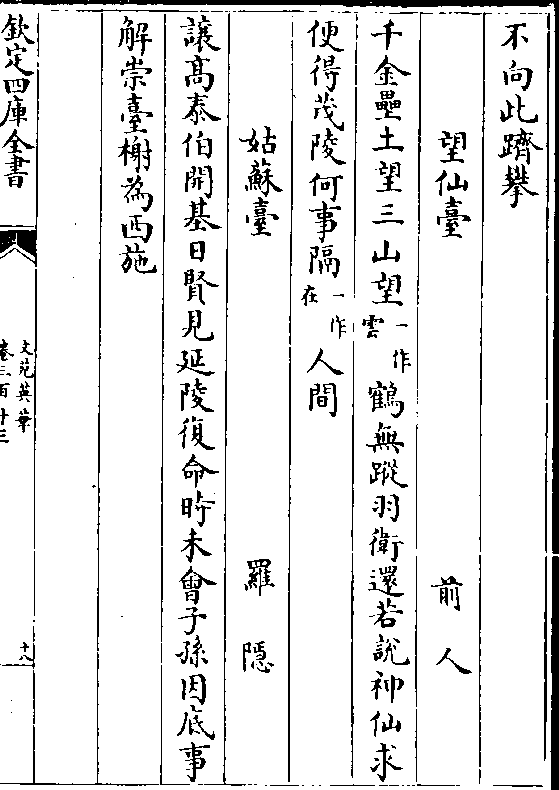 不向此躋攀
望仙臺　前人
千金壘土望三山望一作雲鶴無蹤羽衛還若說神仙求
便得茂陵何事隔一作在人間
姑蘇臺　羅隱
讓髙泰伯開基日賢見延陵復命時未會子孫因底事
解崇臺榭為西施
欽定四庫全書
文苑英華
卷三百十三
十八